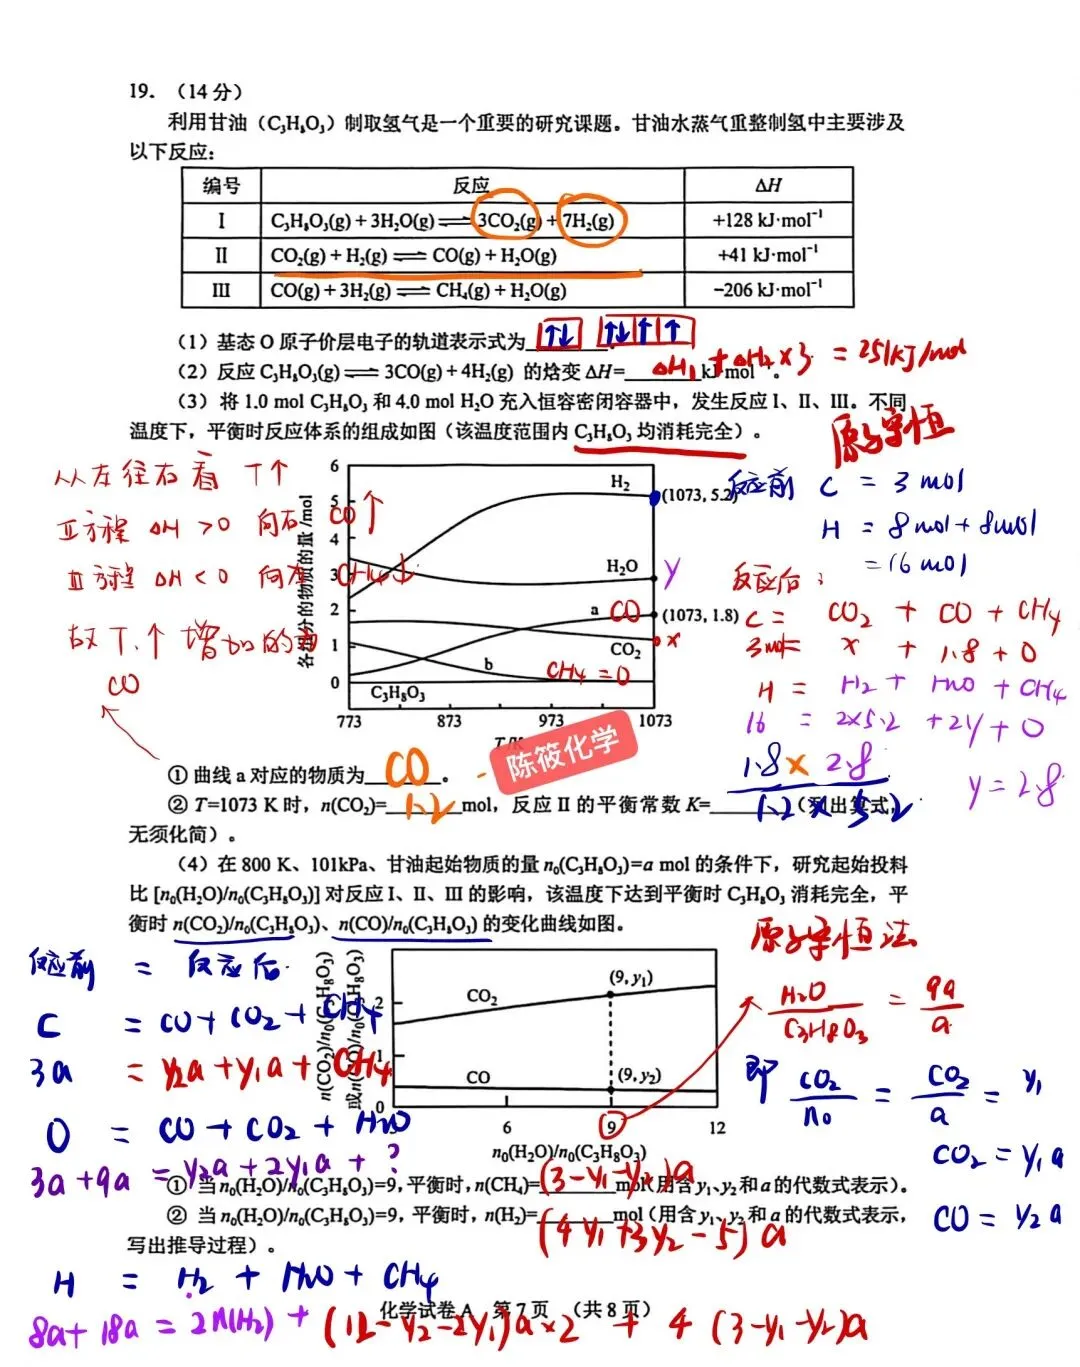 19.（14分）
利用甘油（C₃H₈O₃）制取氢气是一个重要的研究课题。甘油水蒸气重整制氢中主要涉及
以下反应：
编号 反应 ΔH
I C₃H₈O₃(g)+3H₂O(g)⇌3CO₂(g)+7H₂(g) +128 kJ·mol⁻¹
II CO₂(g)+H₂(g)⇌CO(g)+H₂O(g) +41 kJ·mol⁻¹
III CO(g)+3H₂(g)⇌CH₄(g)+H₂O(g) −206 kJ·mol⁻¹
（1）基态 O 原子价层电子的轨道表示式为 ↑↓ ↑↓ ↑ ↑
（2）反应 C₃H₈O₃(g)⇌3CO(g)+4H₂(g) 的焓变 ΔH= ΔH₁+ΔH₂×3 = 251kJ/mol kJ·mol⁻¹。
（3）将 1.0 mol C₃H₈O₃ 和 4.0 mol H₂O 充入恒容密闭容器中，发生反应 I、II、III。不同
温度下，平衡时反应体系的组成如图（该温度范围内 C₃H₈O₃ 均消耗完全）。
原子守恒
从左往右看 T↑
II方程 ΔH>0 向右 CO↑
III方程 ΔH<0 向左 CH₄↓
故T↑增加的为
CO
各组分的物质的量/mol
6
5
4
3
2
1
0
H₂
(1073, 5.2)
H₂O
y
a CO
(1073, 1.8)
CO₂
x
b
CH₄=0
C₃H₈O₃
773 873 973 1073
T/K
反应前 C = 3 mol
H = 8mol+8mol
=16 mol
反应后：
C= CO₂ + CO + CH₄
3mol= x + 1.8 + 0
H = H₂ + H₂O + CH₄
16 = 2×5.2 +2y + 0
y = 2.8
陈筱化学
① 曲线 a 对应的物质为 CO 。
1.8 × 2.8
② T=1073 K 时，n(CO₂)= 1.2 mol，反应 II 的平衡常数 K= 1.2 × 5.2 （列出算式，
无须化简）。
（4）在 800 K、101kPa、甘油起始物质的量 n₀(C₃H₈O₃)=a mol 的条件下，研究起始投料
比 [n₀(H₂O)/n₀(C₃H₈O₃)] 对反应 I、II、III 的影响，该温度下达到平衡时 C₃H₈O₃ 消耗完全，平
衡时 n(CO₂)/n₀(C₃H₈O₃)、n(CO)/n₀(C₃H₈O₃) 的变化曲线如图。
原子守恒法
反应前 = 反应后
C = CO + CO₂ + CH₄
3a = y₂a + y₁a + CH₄
O = CO + CO₂ + H₂O
3a+9a = y₂a + 2y₁a + ?
n(CO₂)/n₀(C₃H₈O₃)
或n(CO)/n₀(C₃H₈O₃)
2
1
0
CO₂
(9, y₁)
CO
(9, y₂)
6 9 12
n₀(H₂O)/n₀(C₃H₈O₃)
H₂O/C₃H₈O₃ = 9a/a
即 CO₂/n₀ = CO₂/a = y₁
CO₂ = y₁a
CO = y₂a
① 当 n₀(H₂O)/n₀(C₃H₈O₃)=9，平衡时，n(CH₄)= (3-y₁-y₂)a mol（用含y₁、y₂和 a 的代数式表示）。
② 当 n₀(H₂O)/n₀(C₃H₈O₃)=9，平衡时，n(H₂)= (4y₁+3y₂-5)a mol（用含 y₁、y₂ 和 a 的代数式表示，
写出推导过程）。
H = H₂ + H₂O + CH₄
化学试卷A 第 7 页 （共 8 页）
8a+18a = 2n(H₂) + (12-y₂-2y₁)a×2 + 4(3-y₁-y₂)a